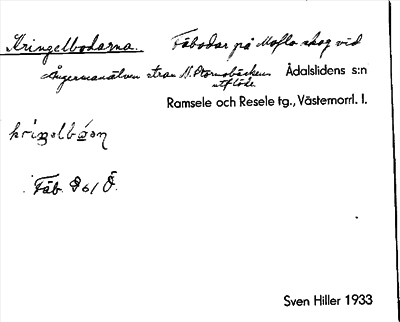 Kringelbodarna. Fäbodar på Moflo skog vid
Ångermanälven utan N. utflöde. Ådalslidens s:n
Ramsele och Resele tg., Västernorrl. l.
Fäb. 61 Ö.
Sven Hiller 1933